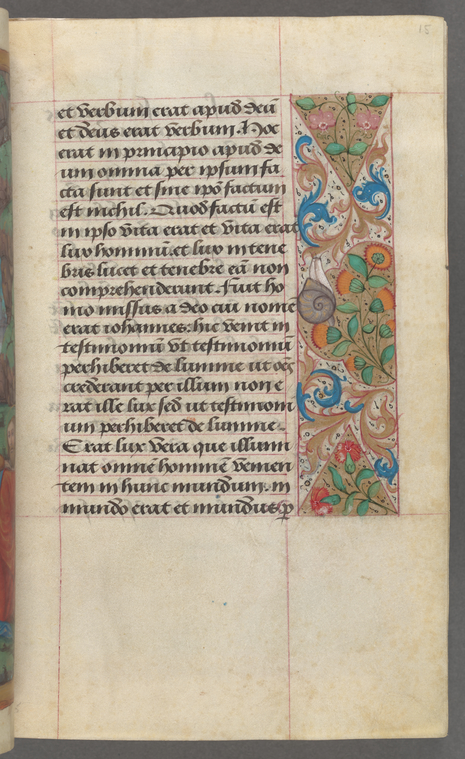 15
et verbum erat apud deū
et deus erat verbum. Hoc
erat in principio apud de
um omnia per ipsum fa
cta sunt et sine ip̄o factum
est nichil. Quod factū est
in ipso vita erat et vita erat
lux hominū et lux in tene
bris lucet et tenebre eā non
comprehenderunt. Fuit ho
mo missus a deo cui nomē
erat iohannes. hic venit in
testimoniū vt testimoniū
perhiberet de lumine ut oēs
crederant per illum non e
rat ille lux sed ut testimoni
um perhiberet de lumine.
Erat lux vera que illumi
nat omnē hominē venien
tem in hunc mundum, in
mundo erat et mundus ꝑ